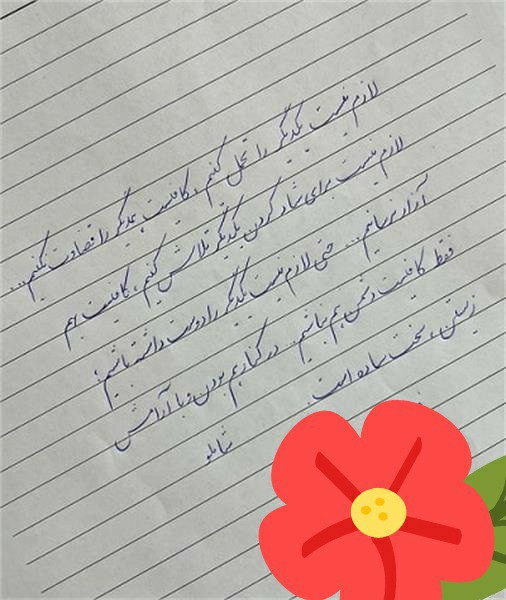 لازم نیست یکدیگر را تحمل کنیم، کافیست همدیگر را قضاوت نکنیم...
لازم نیست برای شاد کردن یکدیگر تلاش کنیم، کافیست بهم
آزار نرسانیم... حتی لازم نیست یکدیگر را دوست داشته باشیم؛
فقط کافیست دشمن هم نباشیم. در کنار هم بودن و با آرامش
زیستن، سخت ساده است.
شاملو